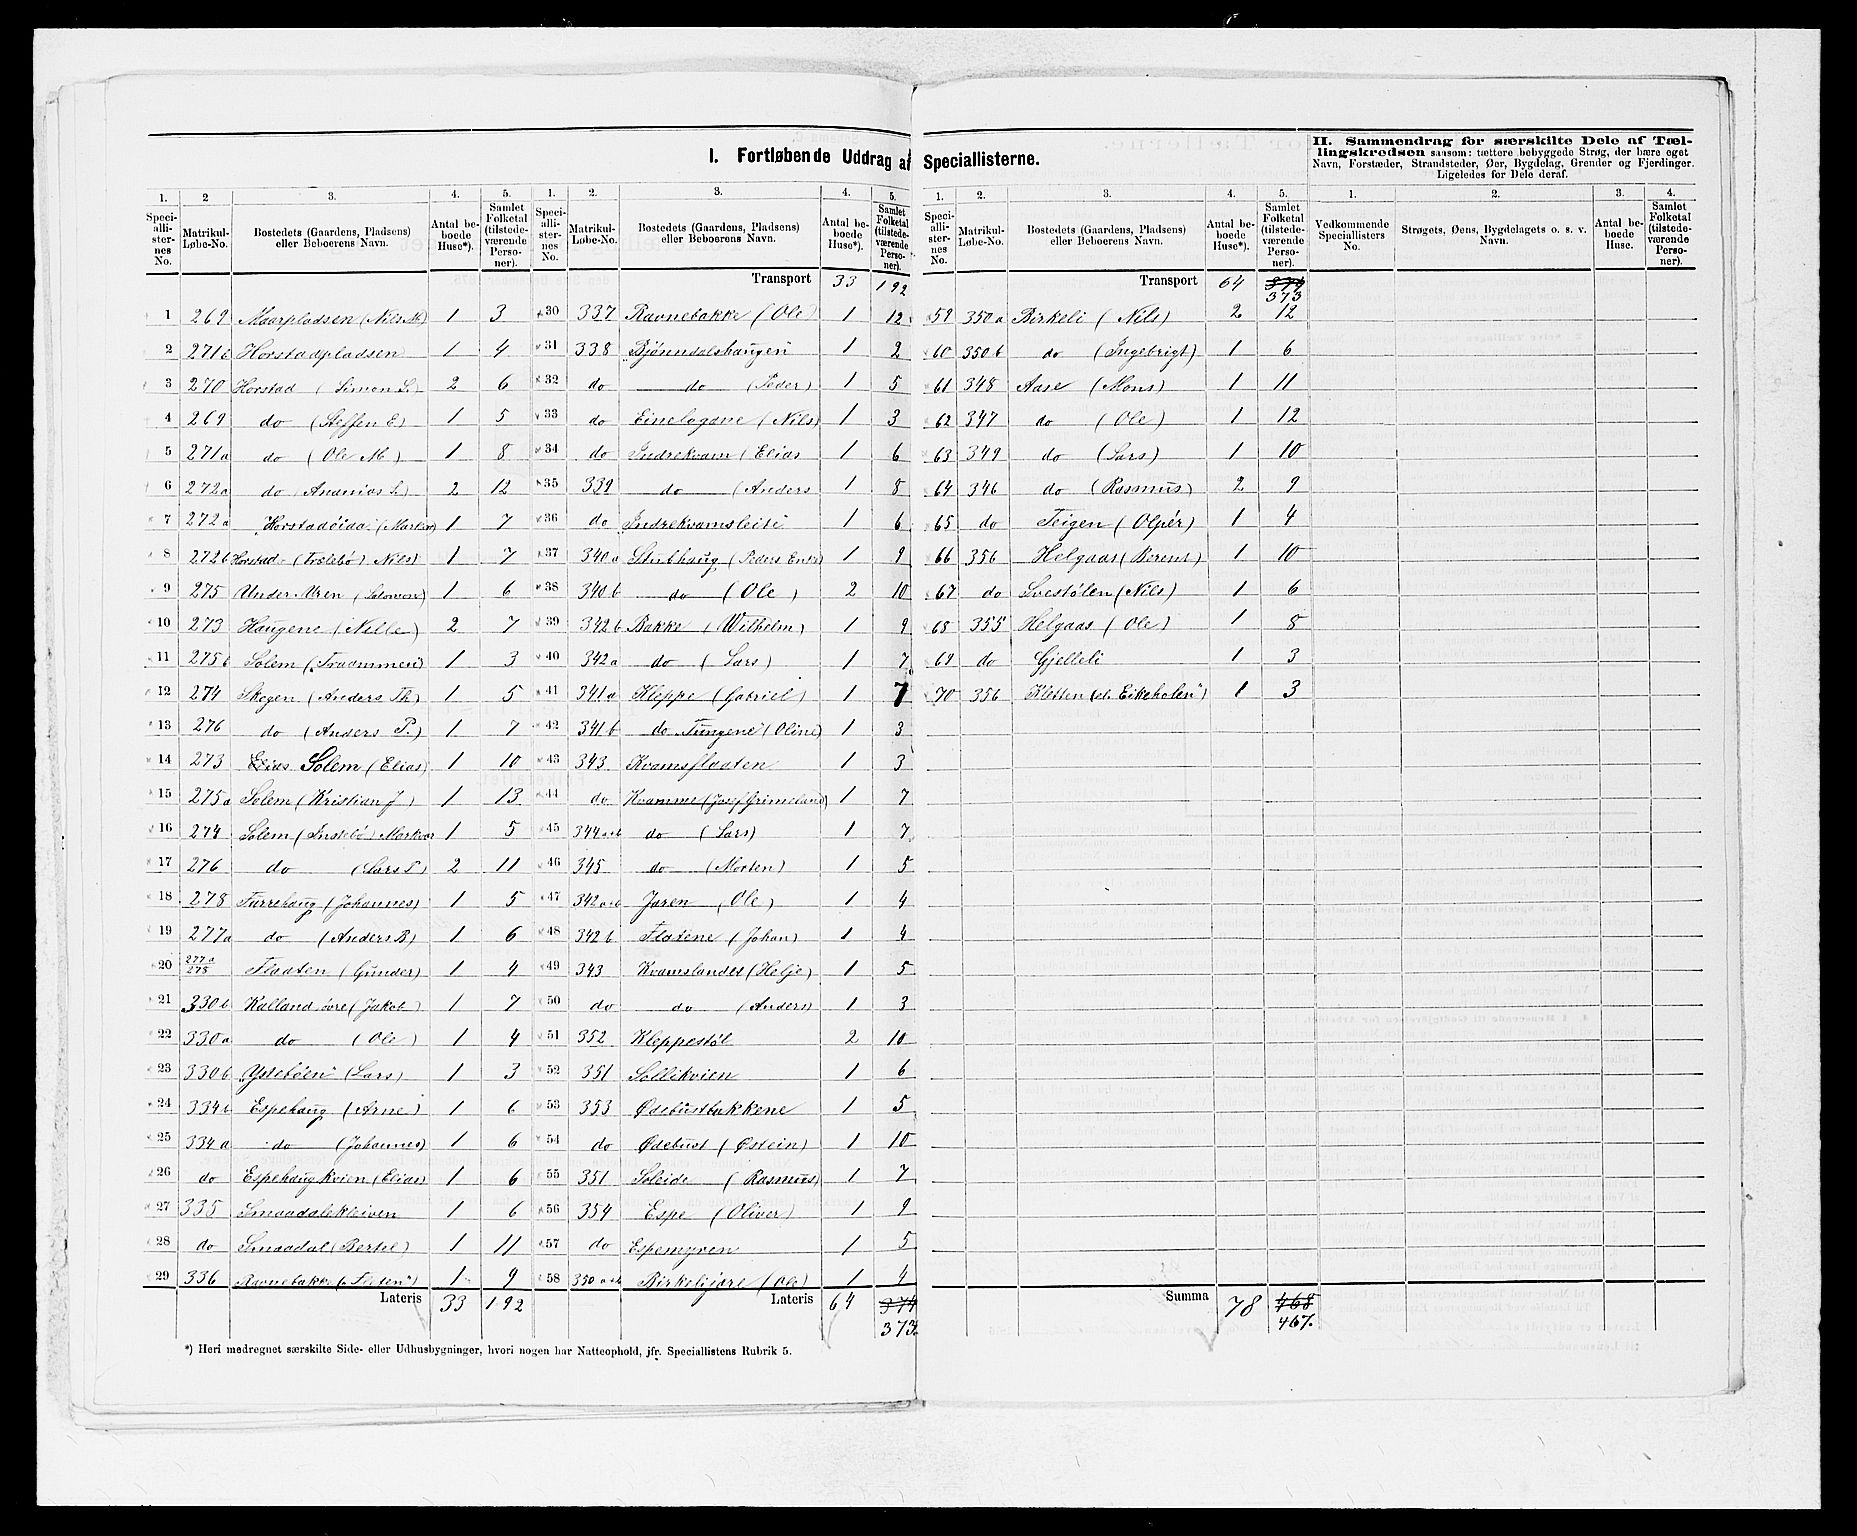 I. Fortløbende Uddrag af Speciallisterne.
II. Sammendrag for særskilte Dele af Tæl-
lingskredsen saasom: tættere bebyggede Strøg, der bære eget
Navn, Forstæder, Strandsteder, Øer, Bygdelag, Grender og Fjerdinger.
Ligeledes for Dele deraf.
1. 2 3. 4. 5. 1. 2. 3. 4. 5. 1. 2. 3. 4. 5. 1. 2. 3. 4.
Speci-alli-ster-nes No. Matrikul-Løbe-No. Bostedets (Gaardens, Pladsens) eller Beboerens Navn. Antal be-boede Huse*). Samlet Folketal (tilstede-værende Perso-ner).
Speci-alli-ster-nes No. Matrikul-Løbe-No. Bostedets (Gaardens, Pladsens) eller Beboerens Navn. Antal be-boede Huse*). Samlet Folketal (tilstede-værende Perso-ner).
Speci-alli-ster-nes No. Matrikul-Løbe-No. Bostedets (Gaardens, Pladsens) eller Beboerens Navn. Antal be-boede Huse*). Samlet Folketal (tilstede-værende Perso-ner).
Vedkommende Speciallisters No. Strøgets, Øens, Bygdelagets o. s. v. Navn. Antal be-boede Huse. Samlet Folketal (tilstede-værende Perso-ner).
1 269 Maarpladsen (Nils M) 1 3
2 271b Horstadpladsen 1 4
3 270 Horstad (Simon S.) 2 6
4 269 do (Steffen E) 1 5
5 271a do (Ole M) 1 8
6 272a do (Ananias S.) 2 12
7 272a "Horstadeida" (Martin) 1 7
8 272b Horstad (Trælebø) Nils) 1 7
9 275 Under-Uren (Salomon) 1 6
10 273 Haugene (Nille) 2 7
11 275b Solem (Traammen) 1 3
12 274 Skogen (Anders Th) 1 5
13 276 do (Anders P.) 1 7
14 273 Elias Solem (Elias) 1 10
15 275a Solem (Kristian J) 1 13
16 274 Solem (Instebø) Markvar 1 5
17 276 do (Lars P) 2 11
18 278 Furrehaug (Johannes) 1 5
19 277a do (Anders B) 1 6
20 277a/278 Flaaten (Gunder) 1 4
21 330b Kalland øvre (Jakob) 1 7
22 330a do (Ole) 1 4
23 330b "Ystebøen" (Lars) 1 3
24 334b Espehaug (Arne) 1 6
25 334a do (Johannes) 1 6
26 do Espehaugkvien (Elias) 1 6
27 335 Smaadalekleiven 1 6
28 do Smaadal (Bertel) 1 11
29 336 Ravnebakke (Teeten") 1 9
Lateris 33 192
Transport 33 192
30 337 Ravnebakke (Ole) 1 12
31 338 "Bjønndalshaugen" 1 2
32 do do (Peder) 1 5
33 do Einelogane (Nils) 1 3
34 do Indrekvam (Elias 1 6
35 339 do (Anders 1 8
36 do Indrekvamsleite 1 6
37 340a Stubhaug (Peders Enke) 1 9
38 340b do (Ole) 2 10
39 342b Bakke (Wilhelm) 1 9
40 342a do (Lars) 1 7
41 341a Kleppe (Gabriel) 1 7
42 341b do "Tungene" (Oline) 1 3
43 343 Kvamsflaaten 1 3
44 do Kvamme (Josef Grimeland) 1 7
45 344a+b do (Lars) 1 7
46 345 do (Morten) 1 5
47 342a+b Jaren (Ole) 1 4
48 342b Flatene (Johan) 1 4
49 343 Kvamslandet (Helje) 1 5
50 do do (Anders) 1 3
51 352 Kleppestøl 2 10
52 351 Sollikvien 1 6
53 353 Ødebustbakkene 1 5
54 do Ødebust (Østein) 1 10
55 351 Soleide (Rasmus) 1 7
56 354 Espe (Oliver) 1 9
57 do Espemyren 1 5
58 350a+b Birkelijare (Ole) 1 4
Lateris 64 374
373.
Transport 64 374
373
59 350a Birkeli (Nils) 2 12
60 350b do (Ingebrigt) 1 6
61 348 Aase (Mons) 1 11
62 347 do (Ole) 1 12
63 349 do (Lars) 1 10
64 346 do (Rasmus) 2 9
65 do Teigen (Olpér) 1 4
66 356 Helgaas (Berent) 1 10
67 do Svestølen (Nils) 1 6
68 355 Helgaas (Ole) 1 8
69 do Gjelleli 1 3
70 356 Kletten (el. Eikeholen") 1 3
Summa 78 468
467.
*) Heri medregnet særskilte Side- eller Udhusbygninger, hvori nogen har Natteophold, jfr. Speciallistens Rubrik 5.